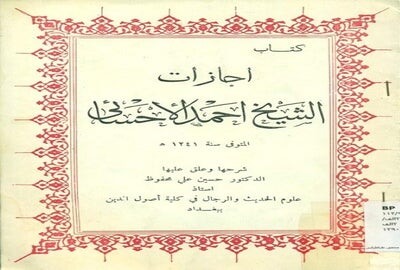 كتاب
اجازات
الشيخ احمد الاحسائي
المتوفى سنة ١٢٤١ ھ
شرحها وعلق عليها
الدكتور حسين علي محفوظ
استاذ
علوم الحديث والرجال في كلية أصول الدين
ببغداد
BP